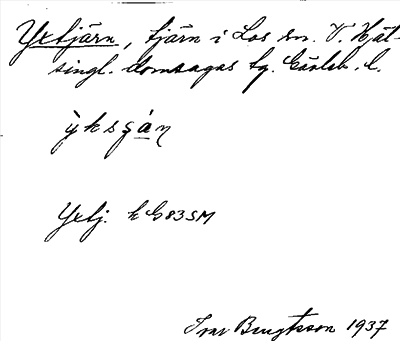 Yxtjärn, tjärn i Los sn. V. Häl-
singl. domsagas tg. Gävleb. l.
ỳksʂán
Yxtj. k G83SM
Ivar Bengtsson 1937